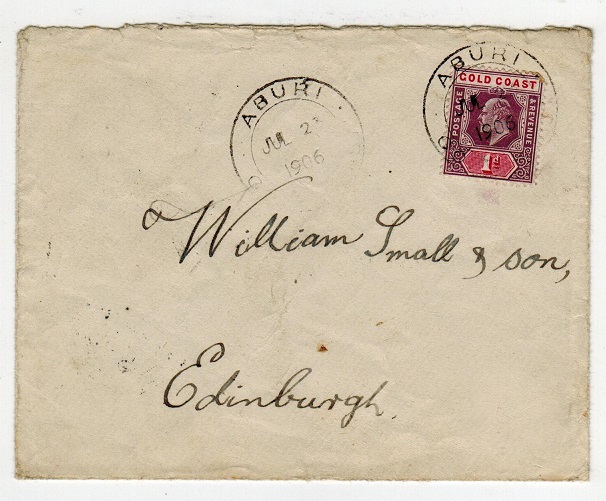 ABURI
JUL 2
1906
ABURI
JUL 2
1906
GOLD COAST
POSTAGE
& REVENUE
1d
William Small & son,
Edinburgh.